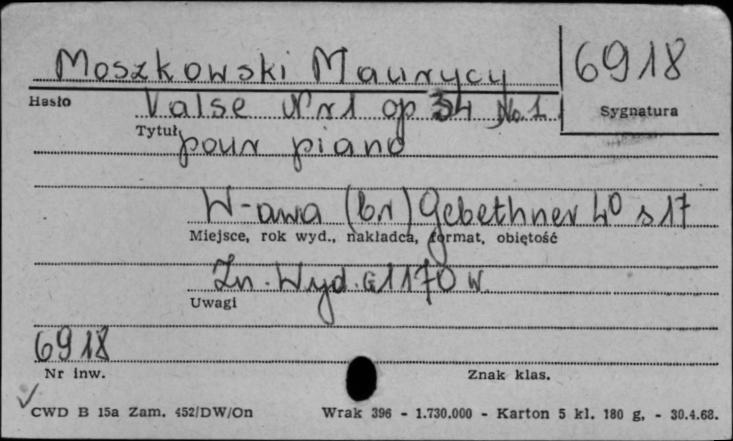 Moszkowski Maurycy 6918
Hasło Valse Nr1 op 34 No. 1 Sygnatura
Tytuł pour piano
W-awa (br) Gebethner 4° s 17
Miejsce, rok wyd., nakładca, format, objętość
Zn. Wyd. G 1170 W
Uwagi
6918
Nr inw. Znak klas.
CWD B 15a Zam. 452/DW/On Wrak 396 - 1.730.000 - Karton 5 kl. 180 g. - 30.4.68.